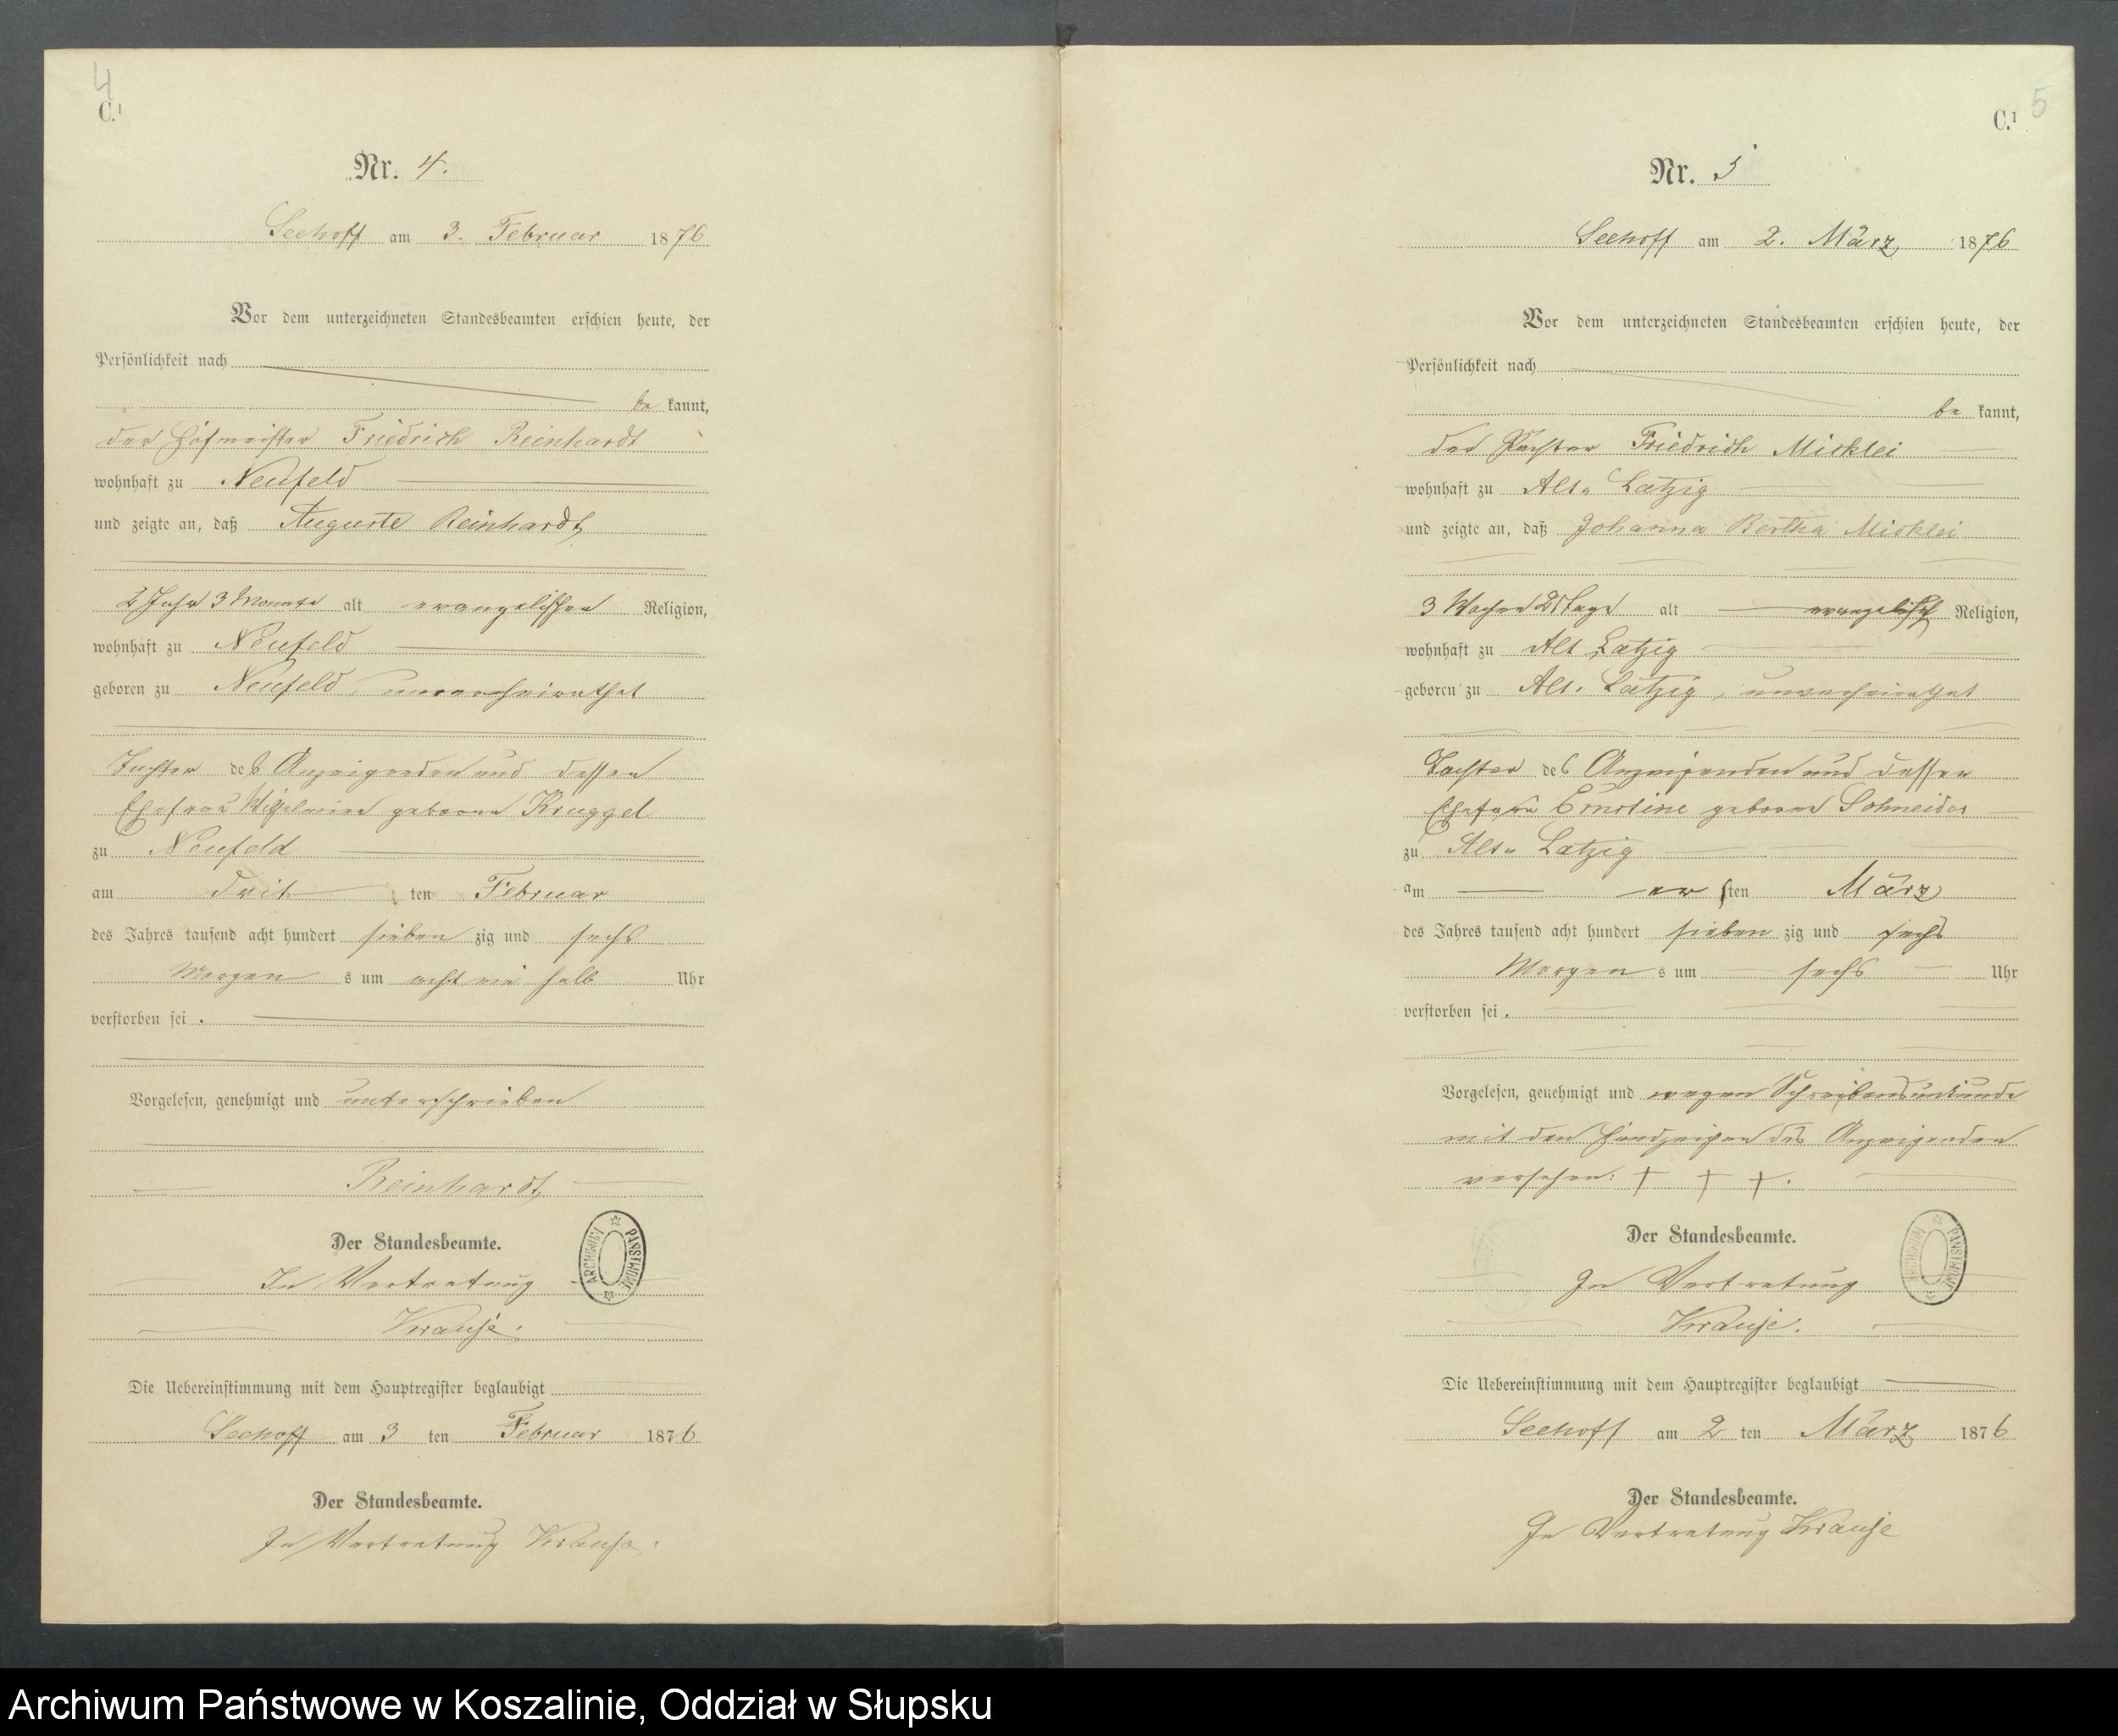 4
C.¹
Nr. 4.
Seehoff am 3. Februar 1876
Vor dem unterzeichneten Standesbeamten erschien heute, der
Persönlichkeit nach
be kannt,
der Hofmeister Friedrich Reinhardt
wohnhaft zu Neufeld
und zeigte an, daß Auguste Reinhardt
2 Jahr 3 Monate alt evangelischer Religion,
wohnhaft zu Neufeld
geboren zu Neufeld, unverheirathet
Tochter des Anzeigenden und dessen
Ehefrau Wilhelmine geborne Kruggel
zu Neufeld
am drit ten Februar
des Jahres tausend acht hundert sieben zig und sechs
Morgen s um acht ein halb Uhr
verstorben sei.
Vorgelesen, genehmigt und unterschrieben
Reinhardt
Der Standesbeamte.
In Vertretung
Krause.
ARCHIWUM PAŃSTWOWE
Die Uebereinstimmung mit dem Hauptregister beglaubigt
Seehoff am 3 ten Februar 1876
Der Standesbeamte.
In Vertretung Krause.
5
C.¹
Nr. 5
Seehoff am 2. März 1876
Vor dem unterzeichneten Standesbeamten erschien heute, der
Persönlichkeit nach
be kannt,
der Pächter Friedrich Micklei
wohnhaft zu Alt-Latzig
und zeigte an, daß Johanna Bertha Micklei
3 Wochen 2 Tage alt evangelisch Religion,
wohnhaft zu Alt Latzig
geboren zu Alt-Latzig, unverheirathet
Tochter des Anzeigenden und dessen
Ehefrau Ernstine geborne Schneider
zu Alt-Latzig
am er sten März
des Jahres tausend acht hundert sieben zig und sechs
Morgen s um sechs Uhr
verstorben sei.
Vorgelesen, genehmigt und wegen Schreibensunkunde
mit den Handzeichen des Anzeigenden
versehen: † † †.
Der Standesbeamte.
In Vertretung
Krause.
ARCHIWUM PAŃSTWOWE
Die Uebereinstimmung mit dem Hauptregister beglaubigt
Seehoff am 2 ten März 1876
Der Standesbeamte.
In Vertretung Krause
Archiwum Państwowe w Koszalinie, Oddział w Słupsku